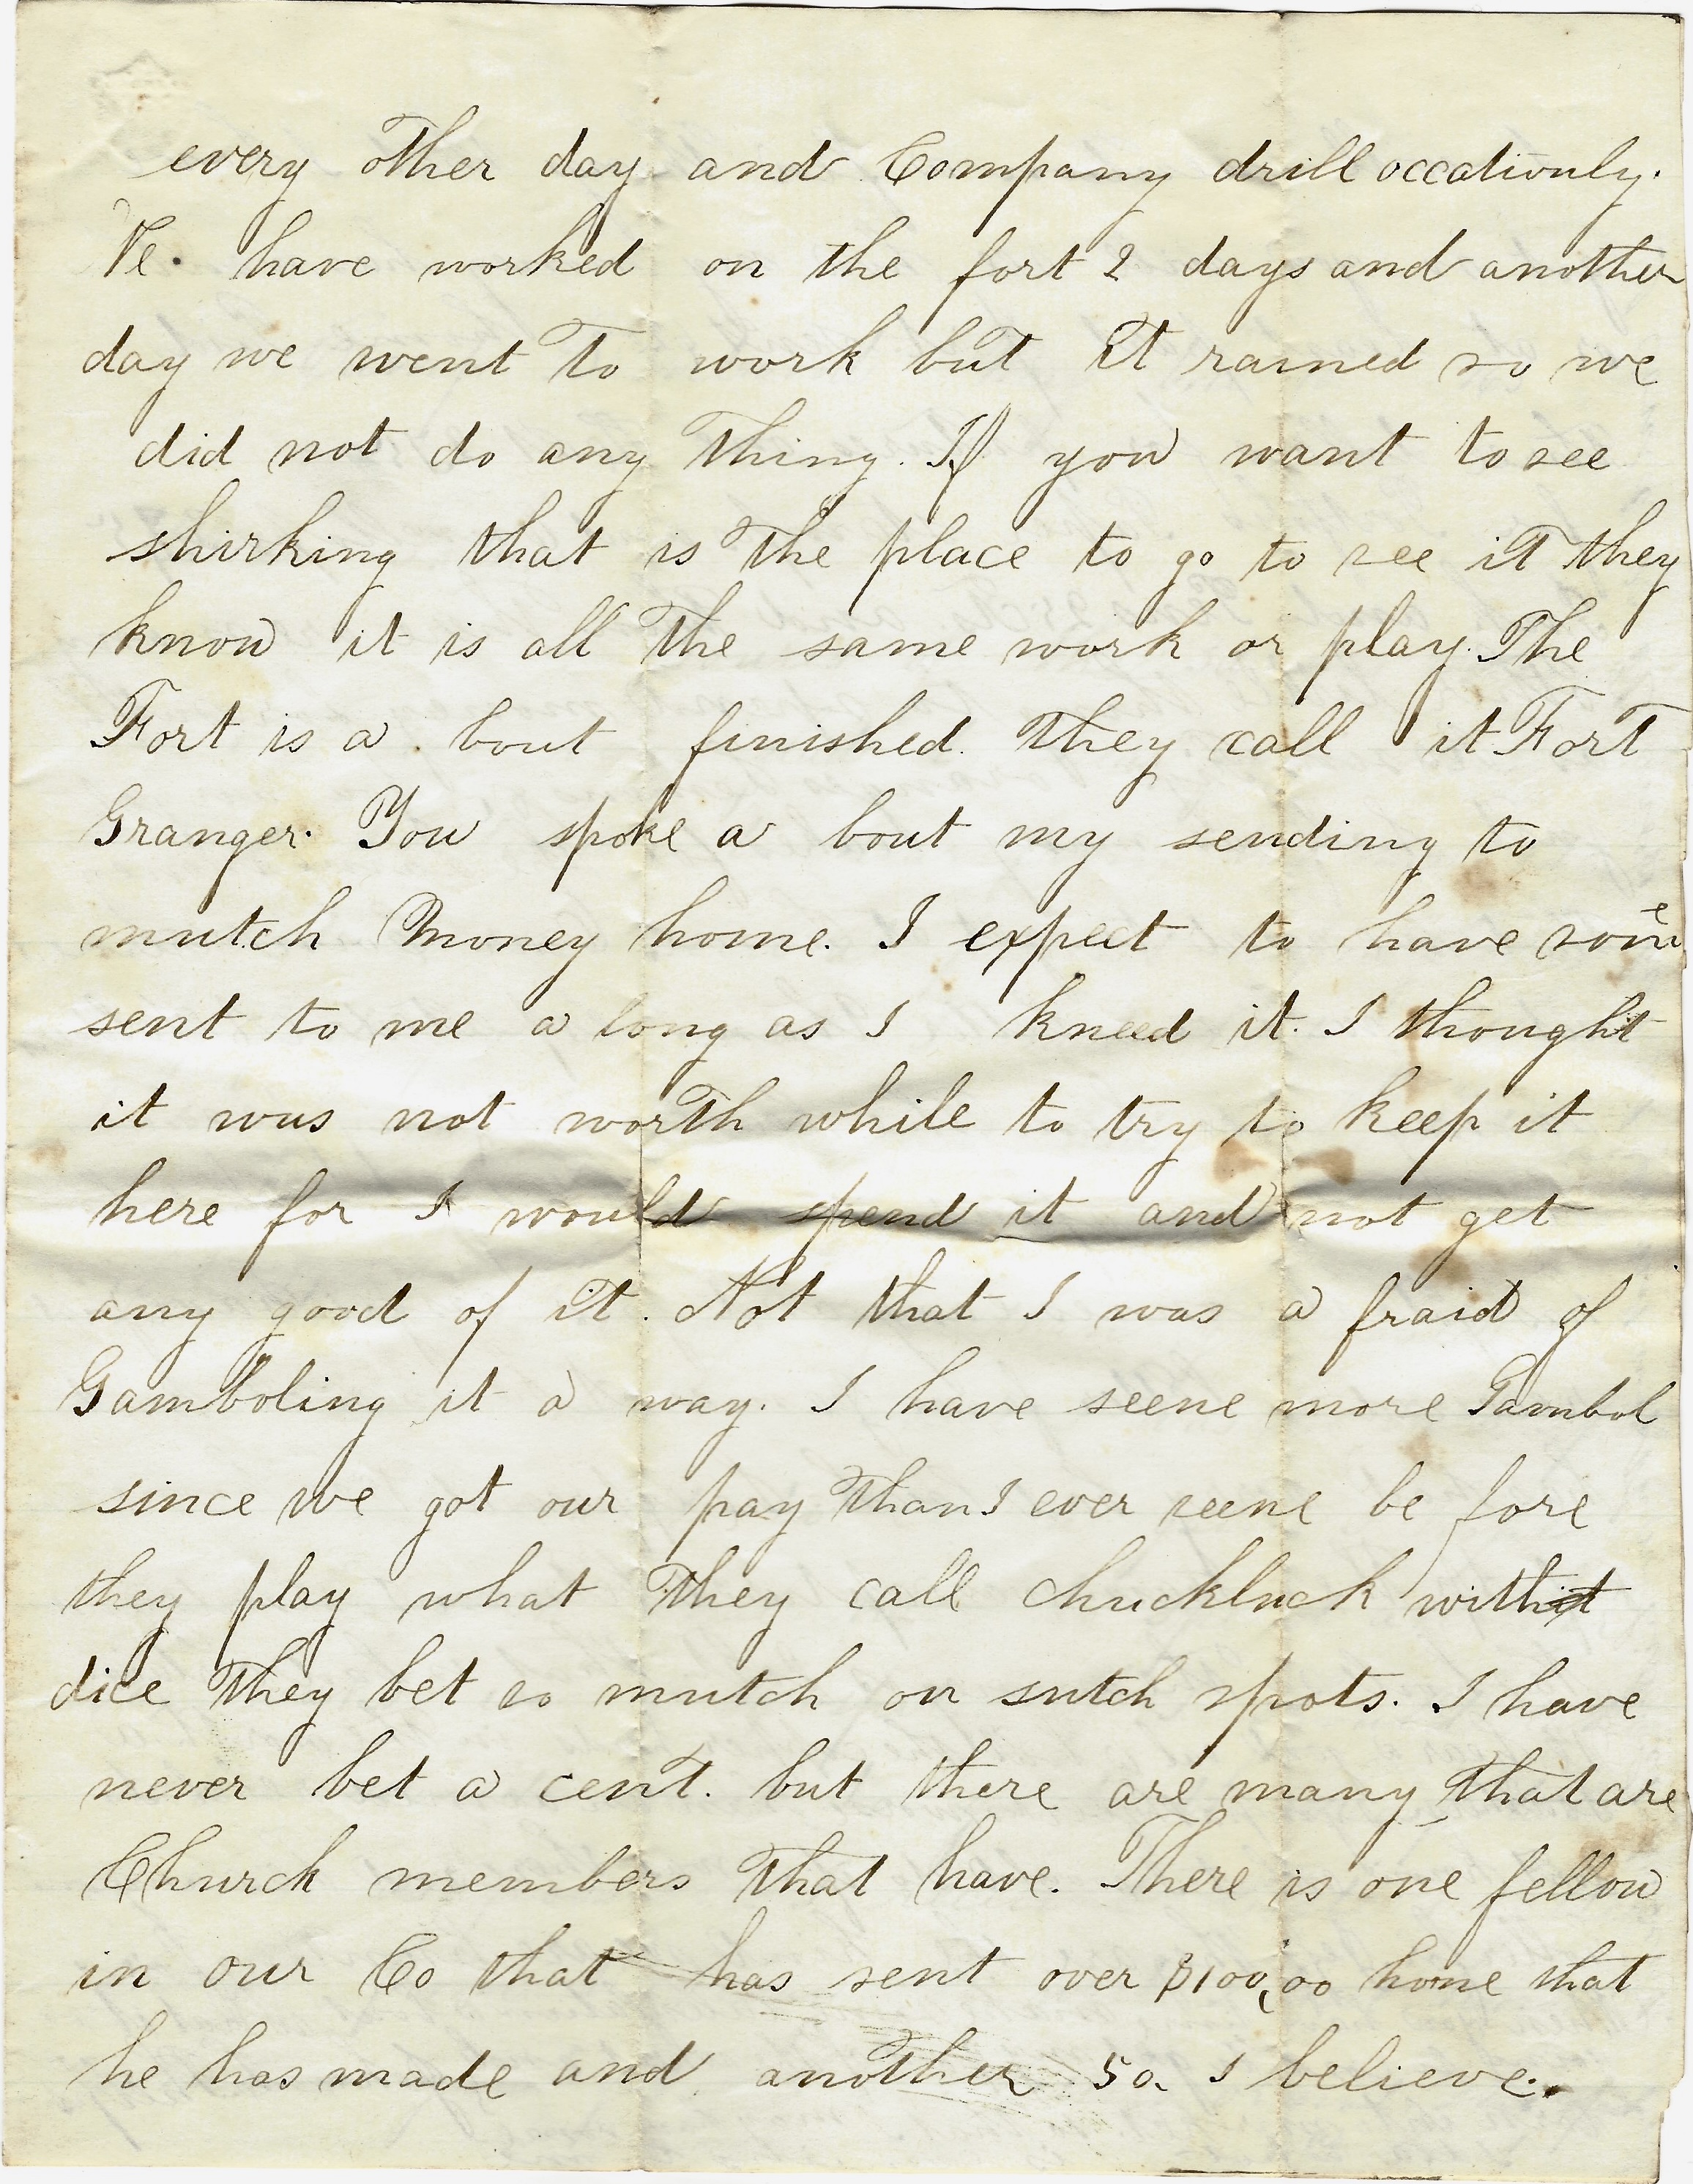 every other day and Company drill occationly.
We. have worked on the fort 2 days and another
day we went to work but it rained so we
did not do any thing. If you want to see
shirking that is the place to go to see it they
know it is all the same work or play. The
Fort is a bout finished. They call it Fort
Granger. You spoke a bout my sending to
mutch Money home. I expect to have some
sent to me a long as I kneed it. I thought
it was not worth while to try to keep it
here for I would spend it and not get
any good of it. Not that I was a fraid of
Gamboling it a way. I have seene more Gambol
since we got our pay than I ever seene be fore
they play what they call chuckluck with it
dice they bet so mutch on sutch spots. I have
never bet a cent. but there are many that are
Church members that have. There is one fellow
in our Co that has sent over $100,00 home that
he has made and another 50. I believe.